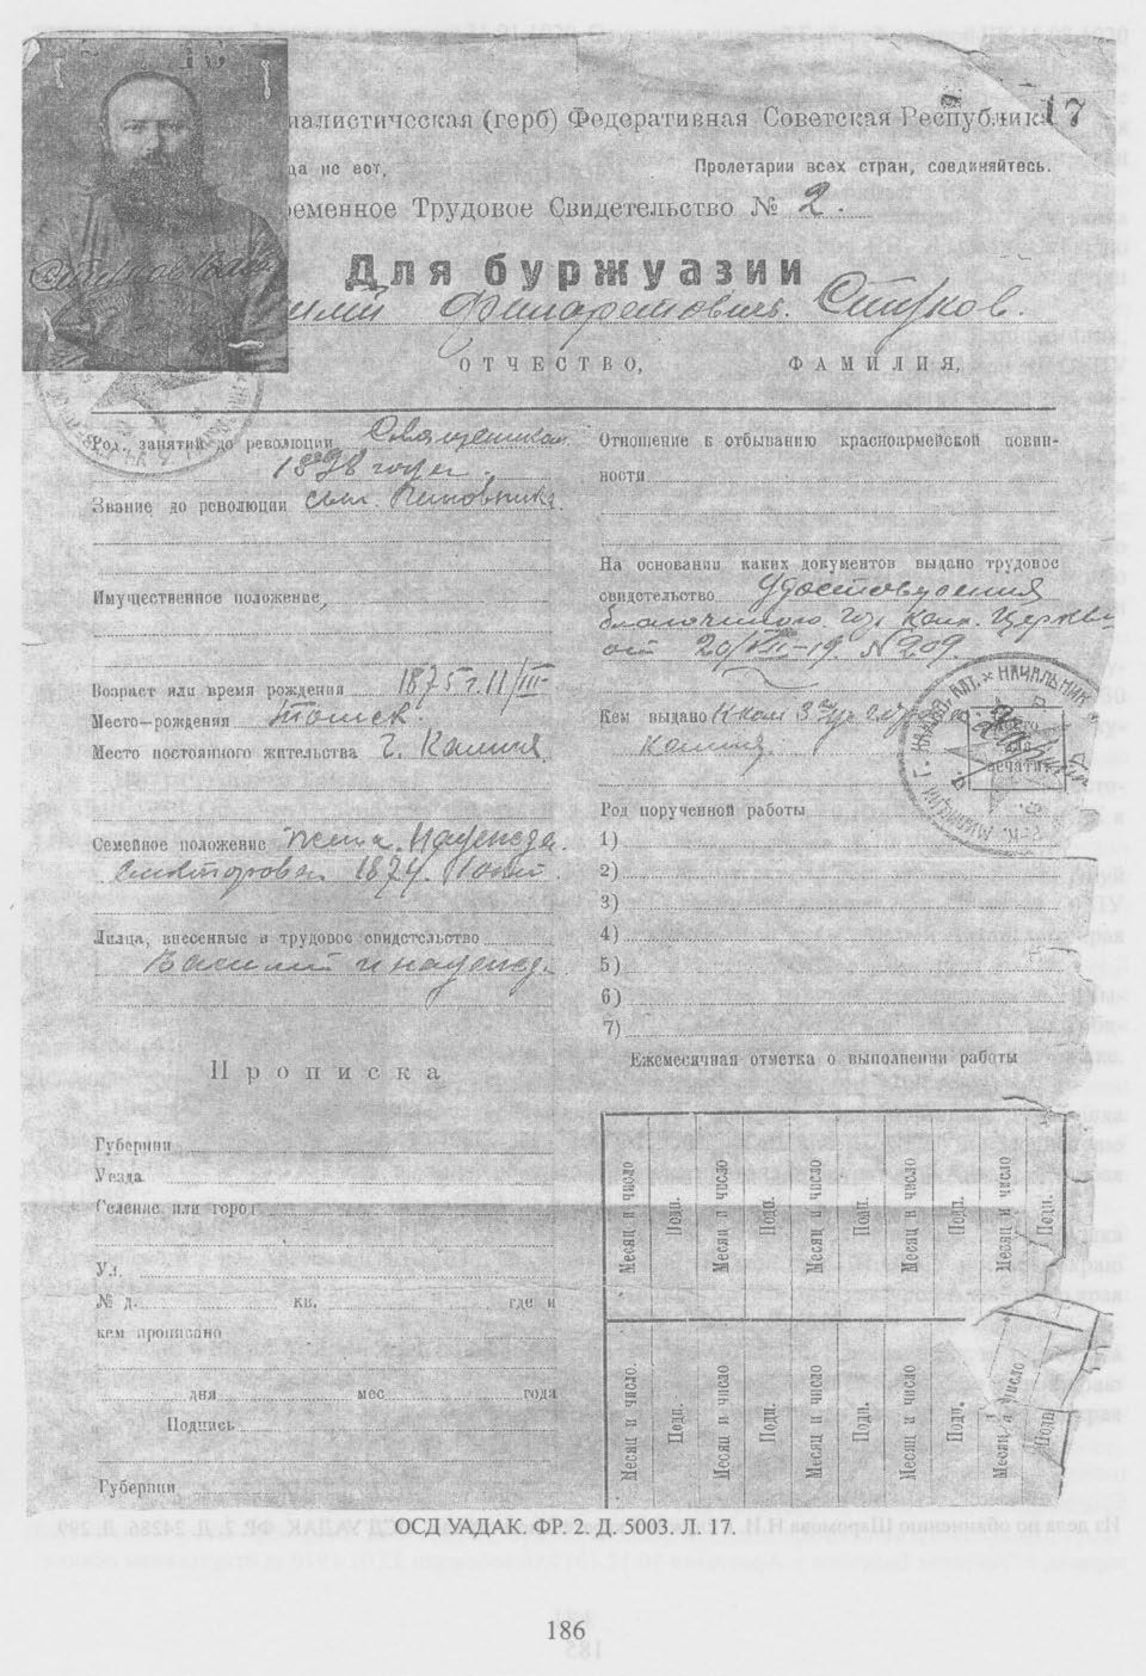 17
иалистическая (герб) Федеративная Советская Республика
да не ест,
Пролетарии всех стран, соединяйтесь.
ременное Трудовое Свидетельство № 2.
Для буржуазии
Филаретовичъ. Стуков.
ОТЧЕСТВО, ФАМИЛИЯ,
Род. занятий до революции Священником
1898 года.
Звание до революции сын. Чиновника.
Имущественное положение,
Возраст или время рождения 1875 г. 11/III
Место—рождения Томск.
Место постоянного жительства г. Каинск
Семейное положение жена. Надежда.
1874.
Лица, внесенные в трудовое свидетельство
Василий и надежд.
Прописка
Губернии
Уезда
Селение или город
Ул.
№ д. кв. где и
кем прописано
дня мес. года
Подпись
Губернии
Отношение к отбыванию красноармейской повин-
ности
На основании каких документов выдано трудовое
свидетельство Удостоверения
благочинного Церкви
от 20/VII-19. №209.
Кем выдано
Место
для
печати
НАЧАЛЬНИК
МИЛИЦИИ Г.
Род порученной работы
1)
2)
3)
4)
5)
6)
7)
Ежемесячная отметка о выполнении работы
Месяц и число Подп. Месяц и число Подп. Месяц и число Подп. Месяц и число Подп. Месяц и число Подп.
Месяц и число. Подп. Месяц и число Подп. Месяц и число Подп. Месяц и число Подп. Месяц и число Подп.
ОСД УАДАК. ФР. 2. Д. 5003. Л. 17.
186